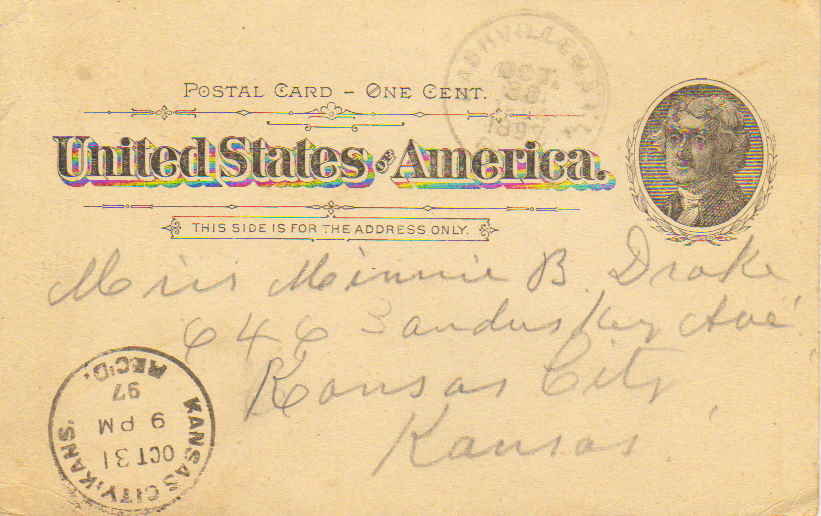 POSTAL CARD – ONE CENT.
United States OF America.
THIS SIDE IS FOR THE ADDRESS ONLY.
NASHVILLE
OCT.
1897
Miss Minnie B. Drake
646 Sandusky Ave.
Kansas City
Kansas.
KANSAS CITY, KANS.
OCT 31
9 PM
97
REC'D.